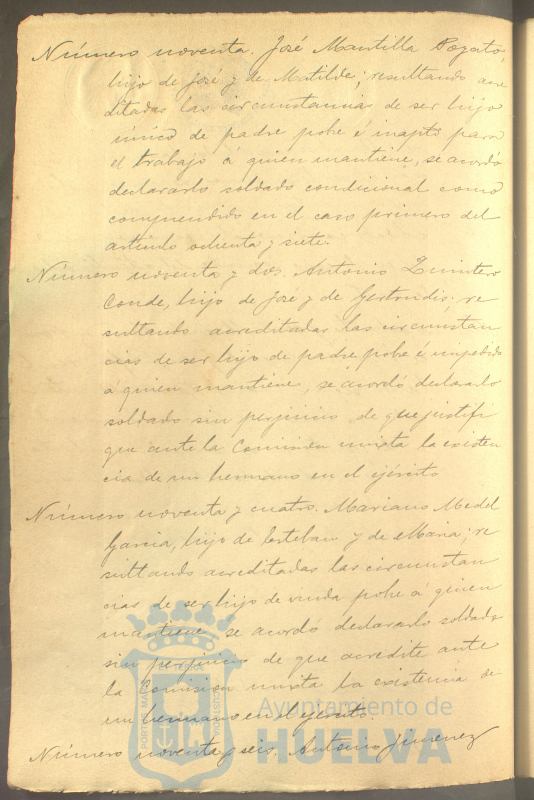 Número noventa. José Mantilla Pozato,
hijo de José y de Matilde; resultando acre
ditadas las circumstancias de ser hijo
único de padre pobre é inapto para
el trabajo á quien mantiene, se acordó
declararlo soldado condicional como
comprendido en el caso primero del
artículo ochenta y siete.
Número noventa y dos. Antonio Quintero
Conde, hijo de José y de Gertrudis; re
sultando acreditadas las circumstan
cias de ser hijo de padre pobre é impedido
á quien mantiene, se acordó declararlo
soldado sin perjuicio de que justifi
que ante la Comisión mixta la existen
cia de un hermano en el ejército
Número noventa y cuatro. Mariano Medel
García, hijo de Esteban y de Maria; re
sultando acreditadas las circumstan
cias de ser hijo de viuda pobre á quien
mantiene se acordó declararlo soldado
sin perjuicio de que acredite ante
la Comisión mixta la existencia de
un hermano en el ejército.
Número noventa y seis. Antonio Jimenez
Ayuntamiento de
HUELVA